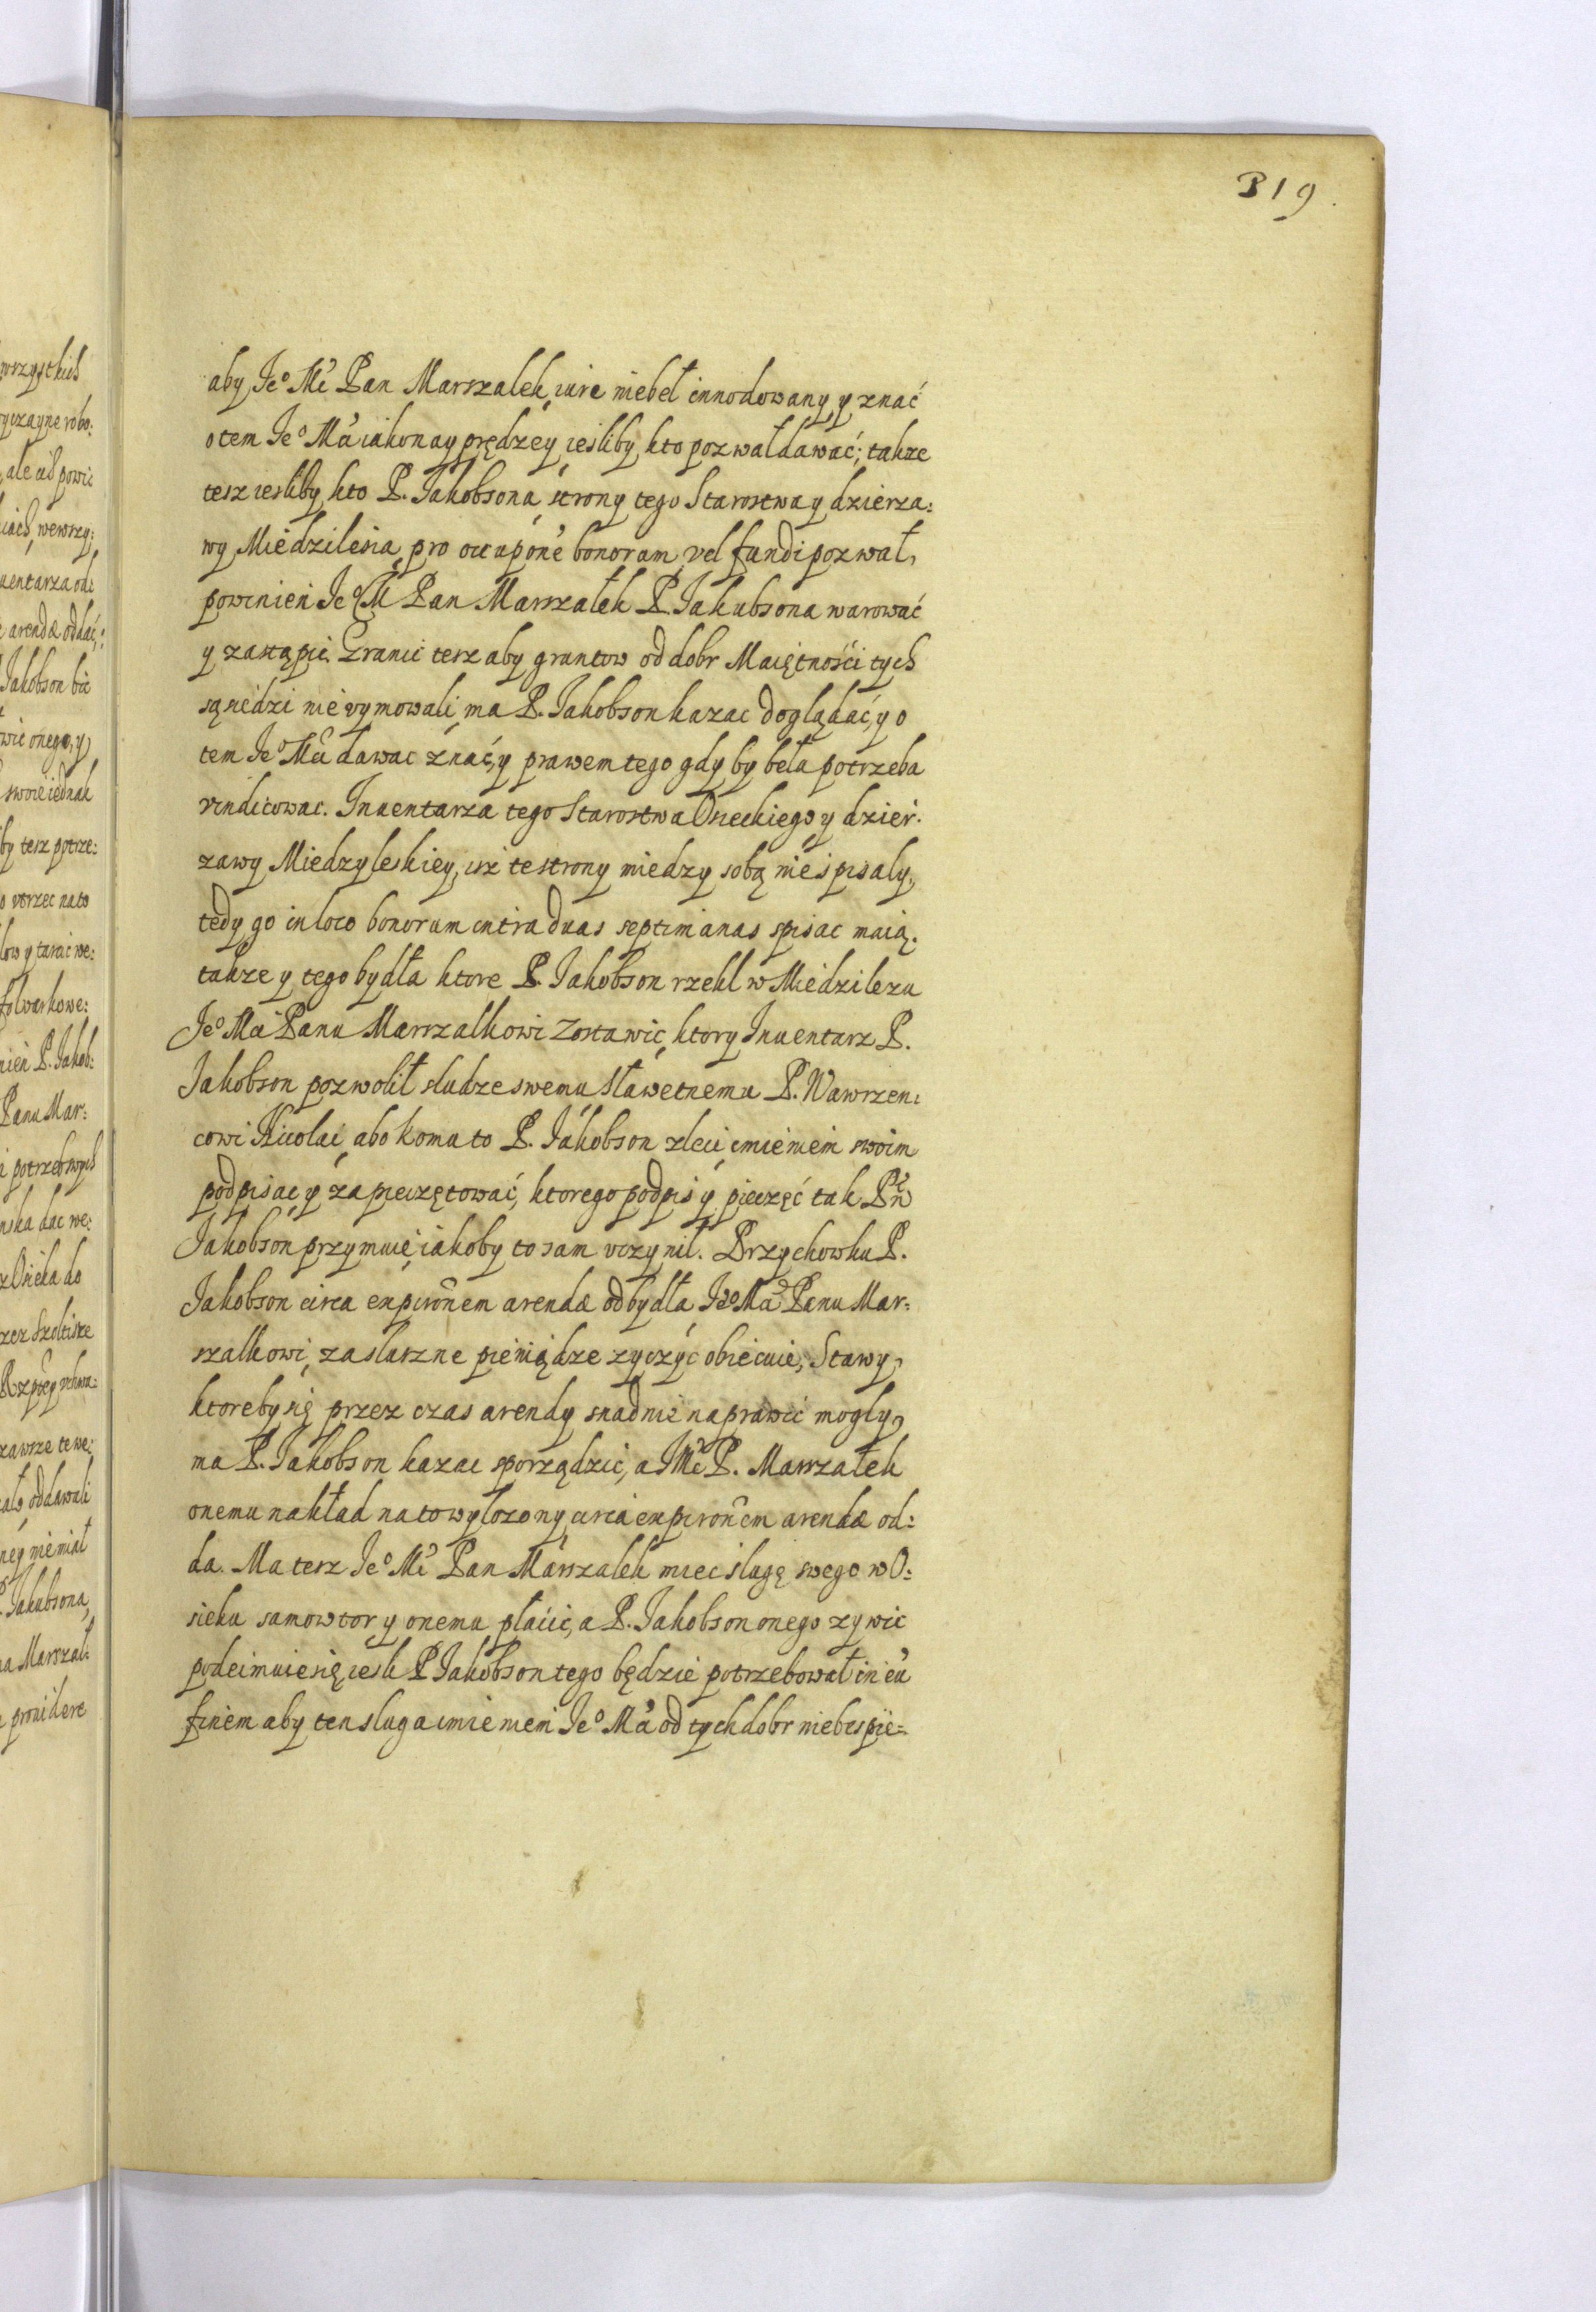 319.
aby Jeº Mć Pan Marszalek iure niebeł innodowany, y znać
otem Jeº Mci iakonay prędzey iesliby kto pozwał dawać; takze
tesz iesliby kto P. Jakobsona strony tego Starostwa y dzierza:
wy Miedzilesia pro occupone bonorum vel fundi pozwał,
powinien Jeº M Pan Marszałek P. Jakubsona warować
y zastąpic. Granic tesz aby gruntow od dobr Maiętności tych
sąsiedzi nie vymowali, ma P. Jakobson kazac doglądać, y o
tem Jeº Mci dawac znać, y prawem tego gdy by beła potrzeba
vindicowac. Inuentarza tego Starostwa Osieckiego y dzier:
zawy Miedzyleskiey, isz te strony miedzy sobą nie spisaly,
tedy go in loco bonorum intra duas septimanas spisac maią.
takze y tego bydła ktore P. Jakobson rzekl w Miedzilezu
Jeº Mci Panu Marszalkowi zostawic, ktory Inuentarz P.
Jakobson pozwolił sludze swemu Sławetnemu P. Wawrzen:
cowi Nicolai, abo komu to P. Jakobson zleci imieniem swoim
podpisac y zapieczętować, ktorego podpis y pieczęć tak Pn
Jakobson przymuie iakoby to sam vczynił. Przychowku P.
Jakobson circa expironem arendæ od bydła Jeº Mci Panu Mar:
szalkowi, za sluszne pieniądze zyczyć obiecuie, Stawy,
ktoreby się przez czas arendy snadnie naprawic mogly,
ma P. Jakobson kazac sporządzic, a JMć P. Marszałek
onemu nakład na to wylozony circa expironem arendæ od:
da. Ma tesz Jeº Mć Pan Marszalek miec slugę swego w O:
sieku samowtor y onemu płacic, a P. Jakobson onego zywic
podeimuie się iesli P Jakobson tego będzie potrzebował in eū
finem aby ten sluga imieniem Jeº Mci od tych dobr niebespie=